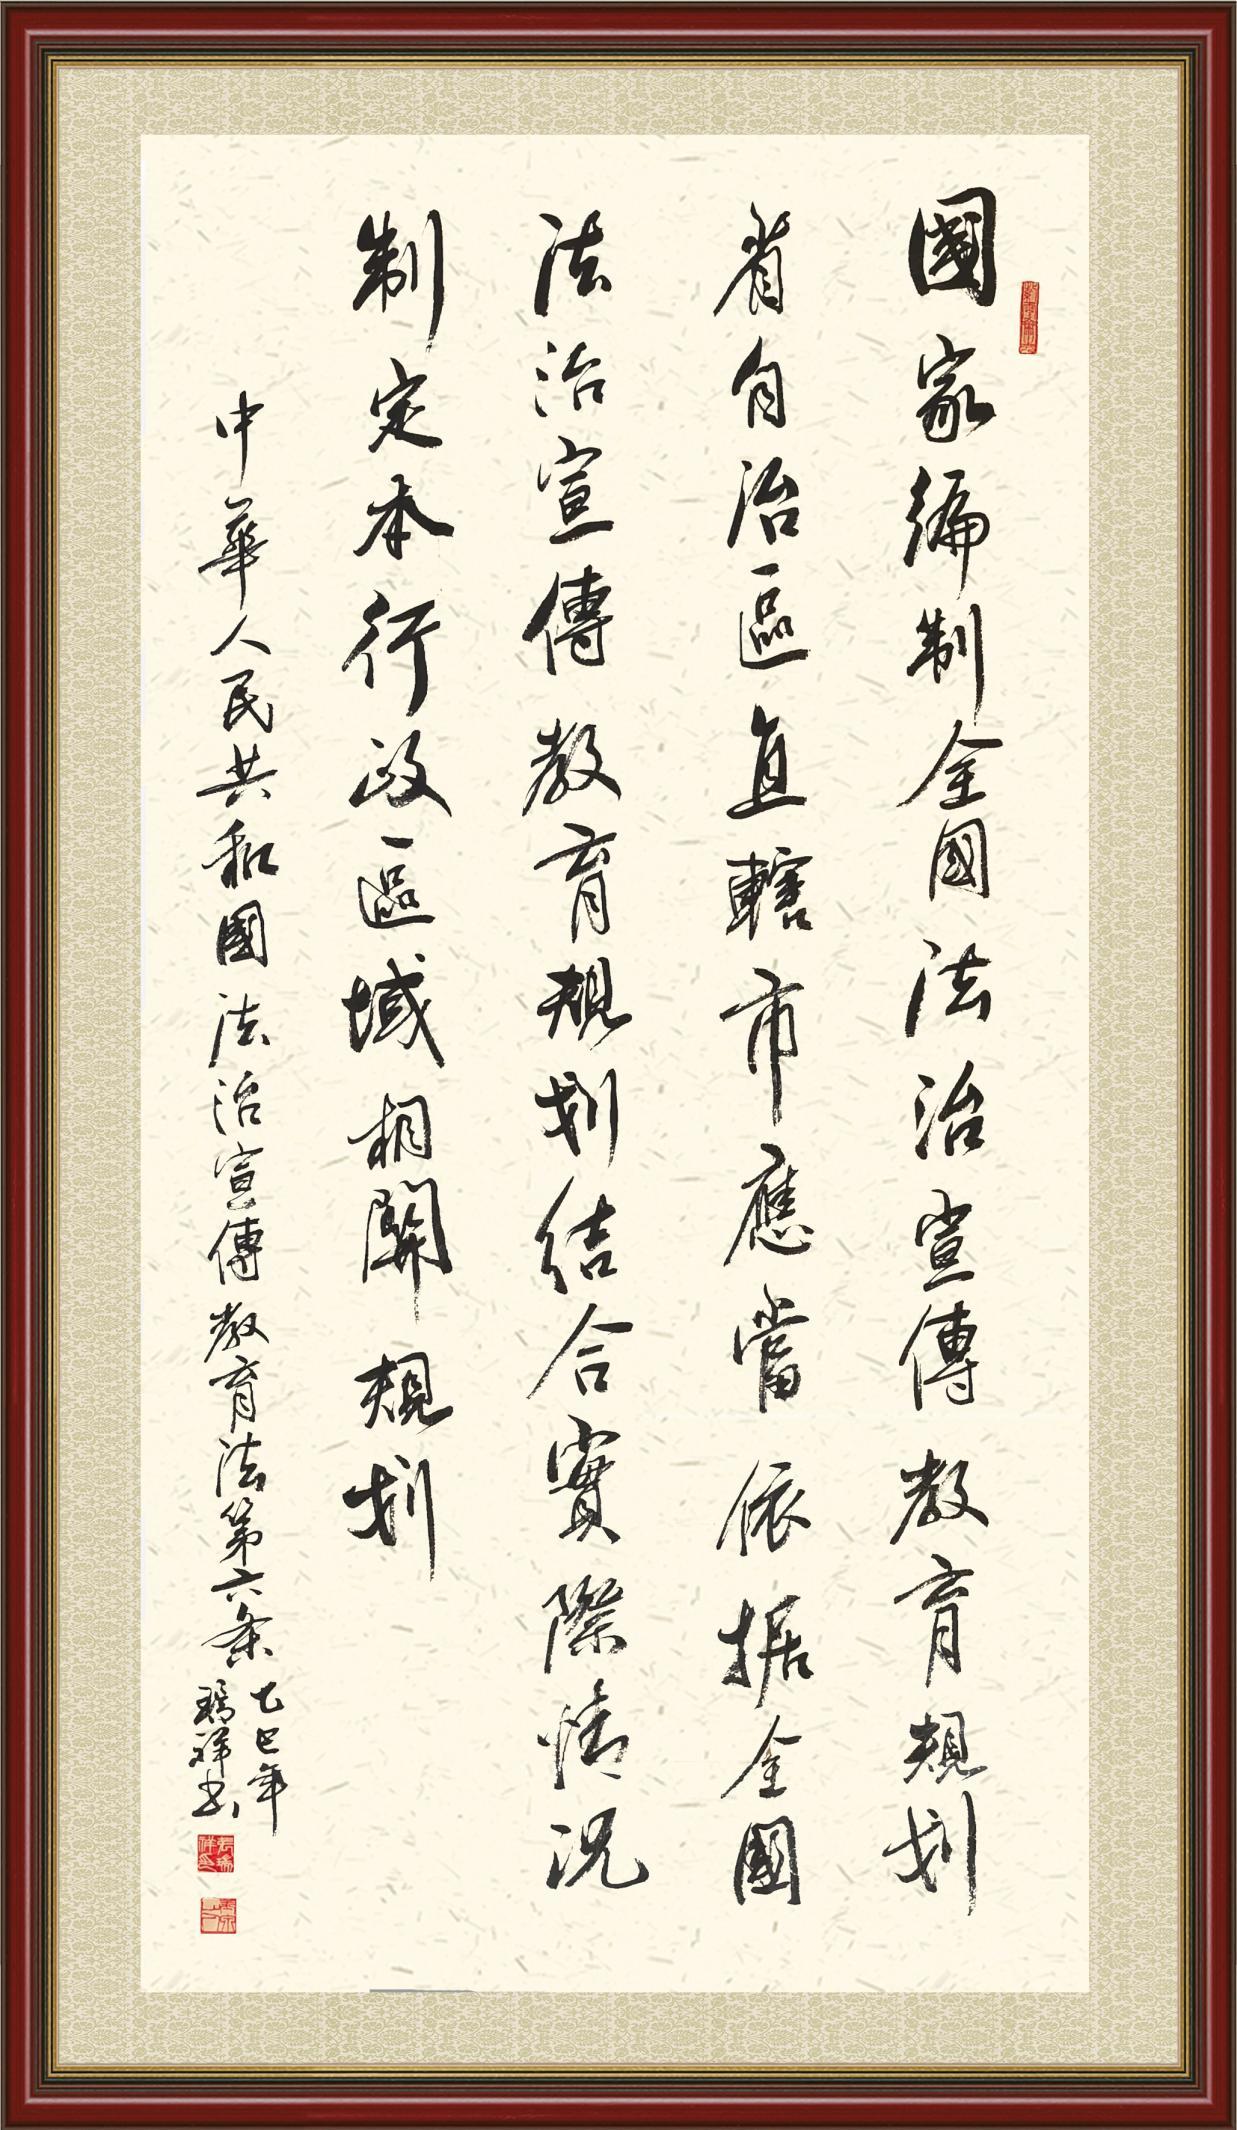 國家编制全國法治宣傳教育規划
省自治區直轄市應當依据全國
法治宣傳教育規划结合實際情况
制定本行政區域相關規划
中華人民共和國法治宣傳教育法第六条
乙巳年
瑞祥书